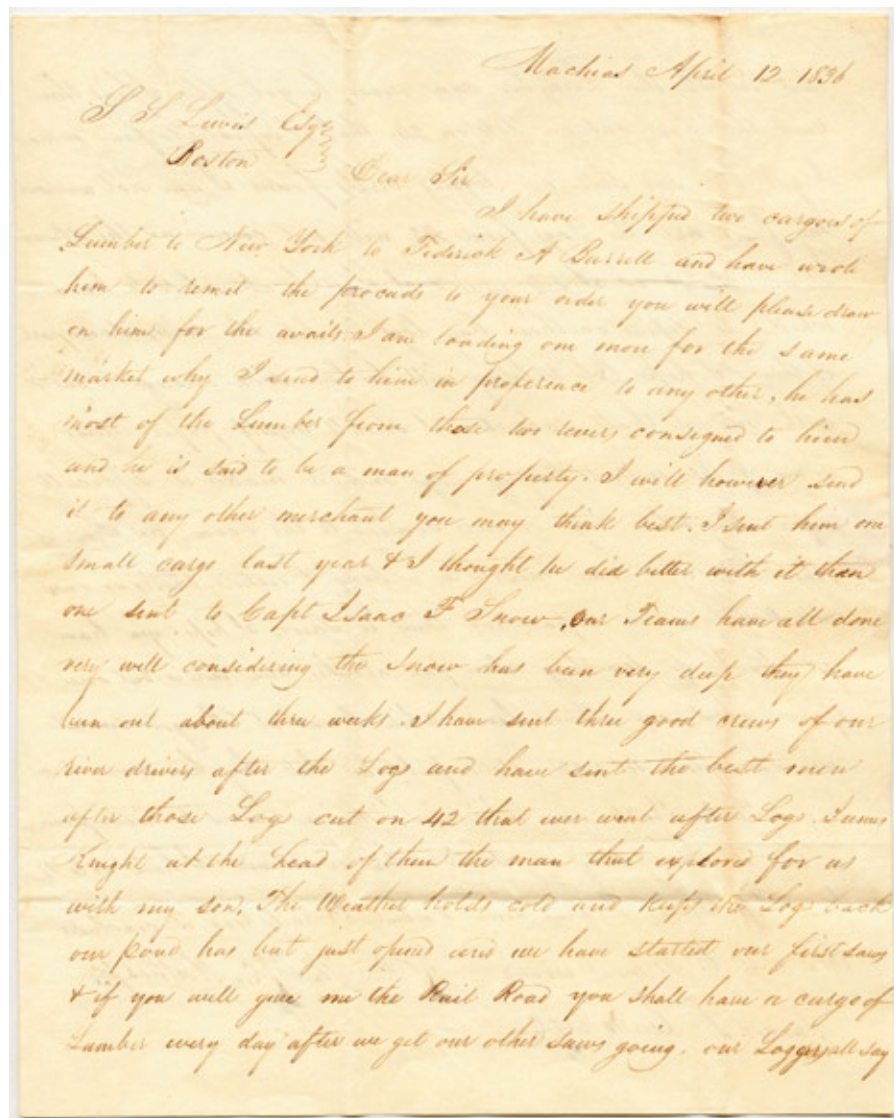 Machias April 12 1836
S S Lewis Esqr
Boston
Dear Sir
I have shipped two cargoes of
Lumber to New York to Federick A Burrell and have wrote
him to remit the procads to your order you will please draw
on him for the avails, I am loading one more for the same
market why I send to him in preference to any other, he has
most of the Lumber from these two rivers consigned to him
and he is said to be a man of property. I will however send
it to any other merchant you may think best. I sent him one
small cargo last year & I thought he did better with it than
one sent to Capt Isaac F Snow, Our Teams have all done
very well considering the Snow has been very deep they have
been out about three weeks. I have sent three good crews of our
river drivers after the Logs and have sent the best men
after those Logs cut on 42 that ever went after Logs. James
Knight at the head of them the man that explored for us
with my son. The Weather holds cold and keeps the Logs back
our pond has but just opened and we have started our first saws
& if you will give me the Rail Road you shall have a cargo of
Lumber every day after we get our other saws going. our Loggers all say